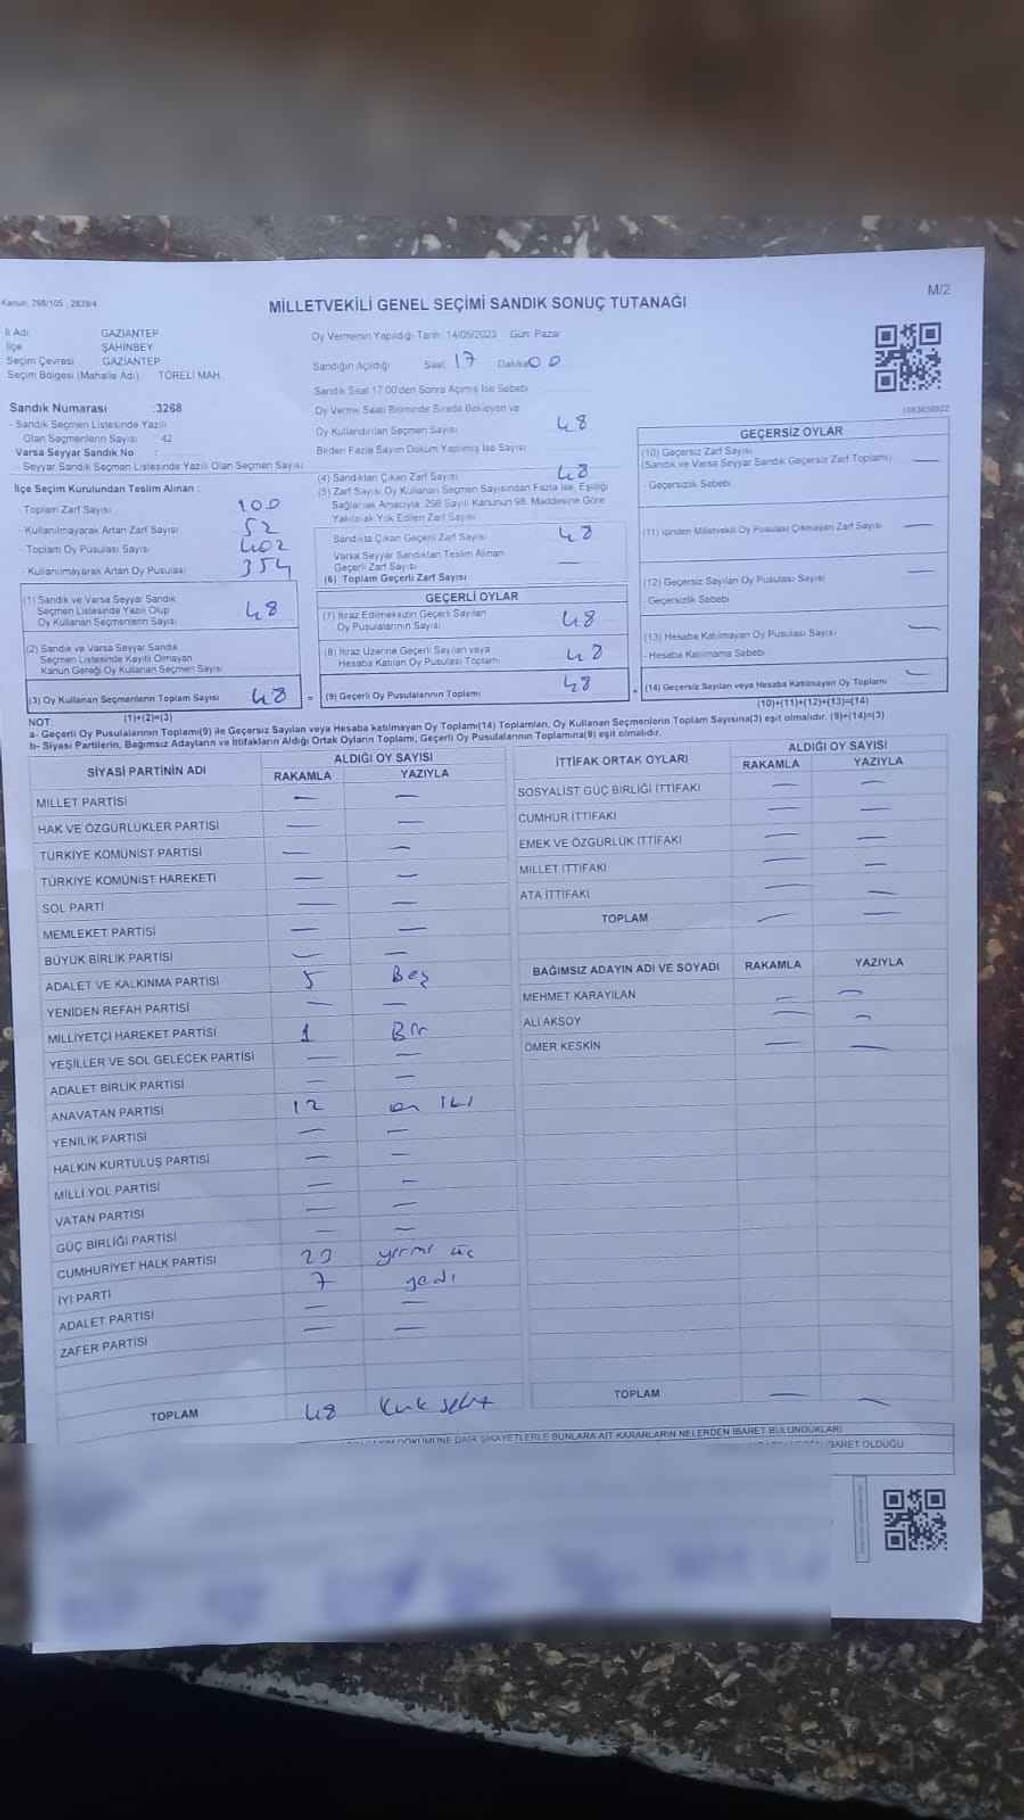 Kanun: 298/105 ; 2839/4
M/2
MİLLETVEKİLİ GENEL SEÇİMİ SANDIK SONUÇ TUTANAĞI
İl Adı GAZİANTEP
İlçe ŞAHİNBEY
Seçim Çevresi GAZİANTEP
Seçim Bölgesi (Mahalle Adı) TÖRELİ MAH.
Sandık Numarası :3268
- Sandık Seçmen Listesinde Yazılı
Olan Seçmenlerin Sayısı 42
Varsa Seyyar Sandık No
- Seyyar Sandık Seçmen Listesinde Yazılı Olan Seçmen Sayısı
İlçe Seçim Kurulundan Teslim Alınan :
Toplam Zarf Sayısı 100
- Kullanılmayarak Artan Zarf Sayısı 52
- Toplam Oy Pusulası Sayısı 402
- Kullanılmayarak Artan Oy Pusulası 354
(1) Sandık ve Varsa Seyyar Sandık
Seçmen Listesinde Yazılı Olup
Oy Kullanan Seçmenlerin Sayısı 48
(2) Sandık ve Varsa Seyyar Sandık
Seçmen Listesinde Kayıtlı Olmayan
Kanun Gereği Oy Kullanan Seçmen Sayısı
(3) Oy Kullanan Seçmenlerin Toplam Sayısı 48
(1)+(2)=(3)
Oy Vermenin Yapıldığı Tarih 14/05/2023 Gün: Pazar
Sandığın Açıldığı Saat 17 Dakika 00
Sandık Saat 17:00'den Sonra Açılmış İse Sebebi
Oy Verme Saati Bitiminde Sırada Bekleyen ve
Oy Kullandırılan Seçmen Sayısı 48
Birden Fazla Sayım Döküm Yapılmış İse Sayısı
(4) Sandıktan Çıkan Zarf Sayısı 48
(5) Zarf Sayısı Oy Kullanan Seçmen Sayısından Fazla İse, Eşitliği
Sağlamak Amacıyla, 298 Sayılı Kanunun 98. Maddesine Göre
Yakılarak Yok Edilen Zarf Sayısı
Sandıkta Çıkan Geçerli Zarf Sayısı 48
Varsa Seyyar Sandıktan Teslim Alınan
Geçerli Zarf Sayısı —
(6) Toplam Geçerli Zarf Sayısı
GEÇERLİ OYLAR
(7) İtiraz Edilmeksizin Geçerli Sayılan
Oy Pusulalarının Sayısı 48
(8) İtiraz Üzerine Geçerli Sayılan veya
Hesaba Katılan Oy Pusulası Toplamı 48
= (9) Geçerli Oy Pusulalarının Toplamı 48
GEÇERSİZ OYLAR
(10) Geçersiz Zarf Sayısı
(Sandık ve Varsa Seyyar Sandık Geçersiz Zarf Toplamı) —
- Geçersizlik Sebebi
(11) İçinden Milletvekili Oy Pusulası Çıkmayan Zarf Sayısı —
(12) Geçersiz Sayılan Oy Pusulası Sayısı —
Geçersizlik Sebebi
(13) Hesaba Katılmayan Oy Pusulası Sayısı —
- Hesaba Katılmama Sebebi
+ (14) Geçersiz Sayılan veya Hesaba Katılmayan Oy Toplamı —
(10)+(11)+(12)+(13)=(14)
NOT:
a- Geçerli Oy Pusulalarının Toplamı(9) ile Geçersiz Sayılan veya Hesaba katılmayan Oy Toplamı(14) Toplamları, Oy Kullanan Seçmenlerin Toplam Sayısına(3) eşit olmalıdır. (9)+(14)=(3)
b- Siyasi Partilerin, Bağımsız Adayların ve İttifakların Aldığı Ortak Oyların Toplamı, Geçerli Oy Pusulalarının Toplamına(9) eşit olmalıdır.
SİYASİ PARTİNİN ADI ALDIĞI OY SAYISI
RAKAMLA YAZIYLA
MİLLET PARTİSİ — —
HAK VE ÖZGÜRLÜKLER PARTİSİ — —
TÜRKİYE KOMÜNİST PARTİSİ — —
TÜRKİYE KOMÜNİST HAREKETİ — —
SOL PARTİ — —
MEMLEKET PARTİSİ — —
BÜYÜK BİRLİK PARTİSİ — —
ADALET VE KALKINMA PARTİSİ 5 Beş
YENİDEN REFAH PARTİSİ — —
MİLLİYETÇİ HAREKET PARTİSİ 1 Bir
YEŞİLLER VE SOL GELECEK PARTİSİ — —
ADALET BİRLİK PARTİSİ — —
ANAVATAN PARTİSİ 12 on iki
YENİLİK PARTİSİ — —
HALKIN KURTULUŞ PARTİSİ — —
MİLLİ YOL PARTİSİ — —
VATAN PARTİSİ — —
GÜÇ BİRLİĞİ PARTİSİ — —
CUMHURİYET HALK PARTİSİ 23 yirmi üç
İYİ PARTİ 7 yedi
ADALET PARTİSİ — —
ZAFER PARTİSİ — —
TOPLAM 48 Kırk sekiz
İTTİFAK ORTAK OYLARI ALDIĞI OY SAYISI
RAKAMLA YAZIYLA
SOSYALİST GÜÇ BİRLİĞİ İTTİFAKI — —
CUMHUR İTTİFAKI — —
EMEK VE ÖZGÜRLÜK İTTİFAKI — —
MİLLET İTTİFAKI — —
ATA İTTİFAKI — —
TOPLAM — —
BAĞIMSIZ ADAYIN ADI VE SOYADI RAKAMLA YAZIYLA
MEHMET KARAYILAN — —
ALİ AKSOY — —
ÖMER KESKİN — —
TOPLAM — —
DÖKÜMÜNE DAİR ŞİKAYETLERLE BUNLARA AİT KARARLARIN NELERDEN İBARET BULUNDUKLARI
İBARET OLDUĞU